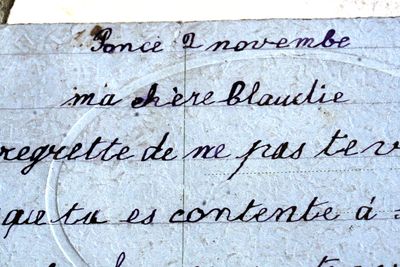 Ponce 2 novembe
ma chère Claudie
regrette de ne pas te v
que tu es contente á